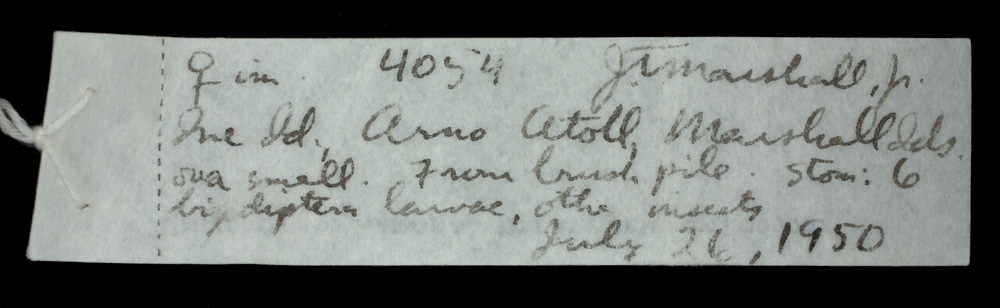 ♀ im. 4054 J.T. Marshall, Jr.
Ine Id., Arno Atoll, Marshall Ids.
ova small. From brush pile. Stom: 6
big diptera larvae, other insects
July 26, 1950